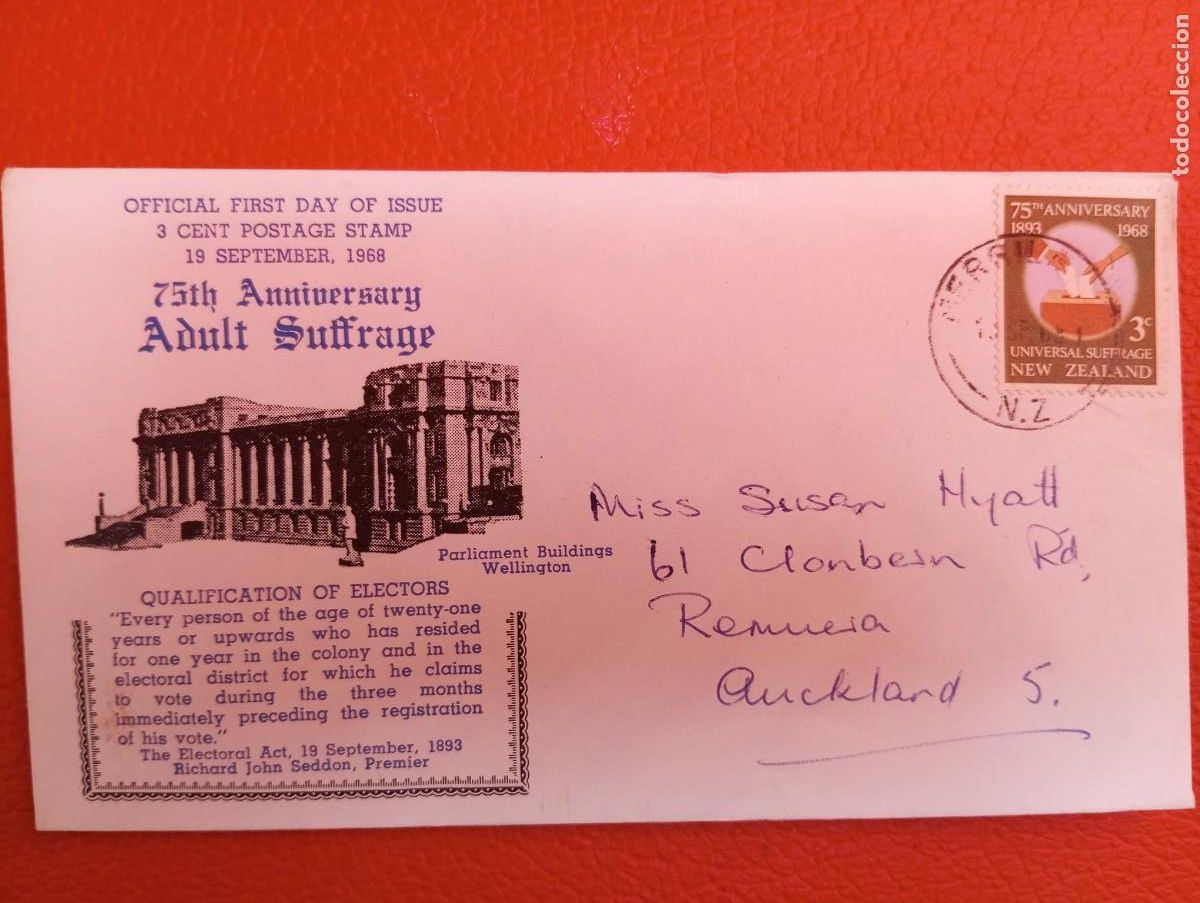 OFFICIAL FIRST DAY OF ISSUE
3 CENT POSTAGE STAMP
19 SEPTEMBER, 1968
75th Anniversary
Adult Suffrage
Parliament Buildings
Wellington
QUALIFICATION OF ELECTORS
"Every person of the age of twenty-one
years or upwards who has resided
for one year in the colony and in the
electoral district for which he claims
to vote during the three months
immediately preceding the registration
of his vote."
The Electoral Act, 19 September, 1893
Richard John Seddon, Premier
75TH ANNIVERSARY
1893 1968
3c
UNIVERSAL SUFFRAGE
NEW ZEALAND
N.Z
Miss Susan Hyatt
61 Clonbern Rd,
Remuera
Auckland 5.
todocoleccion